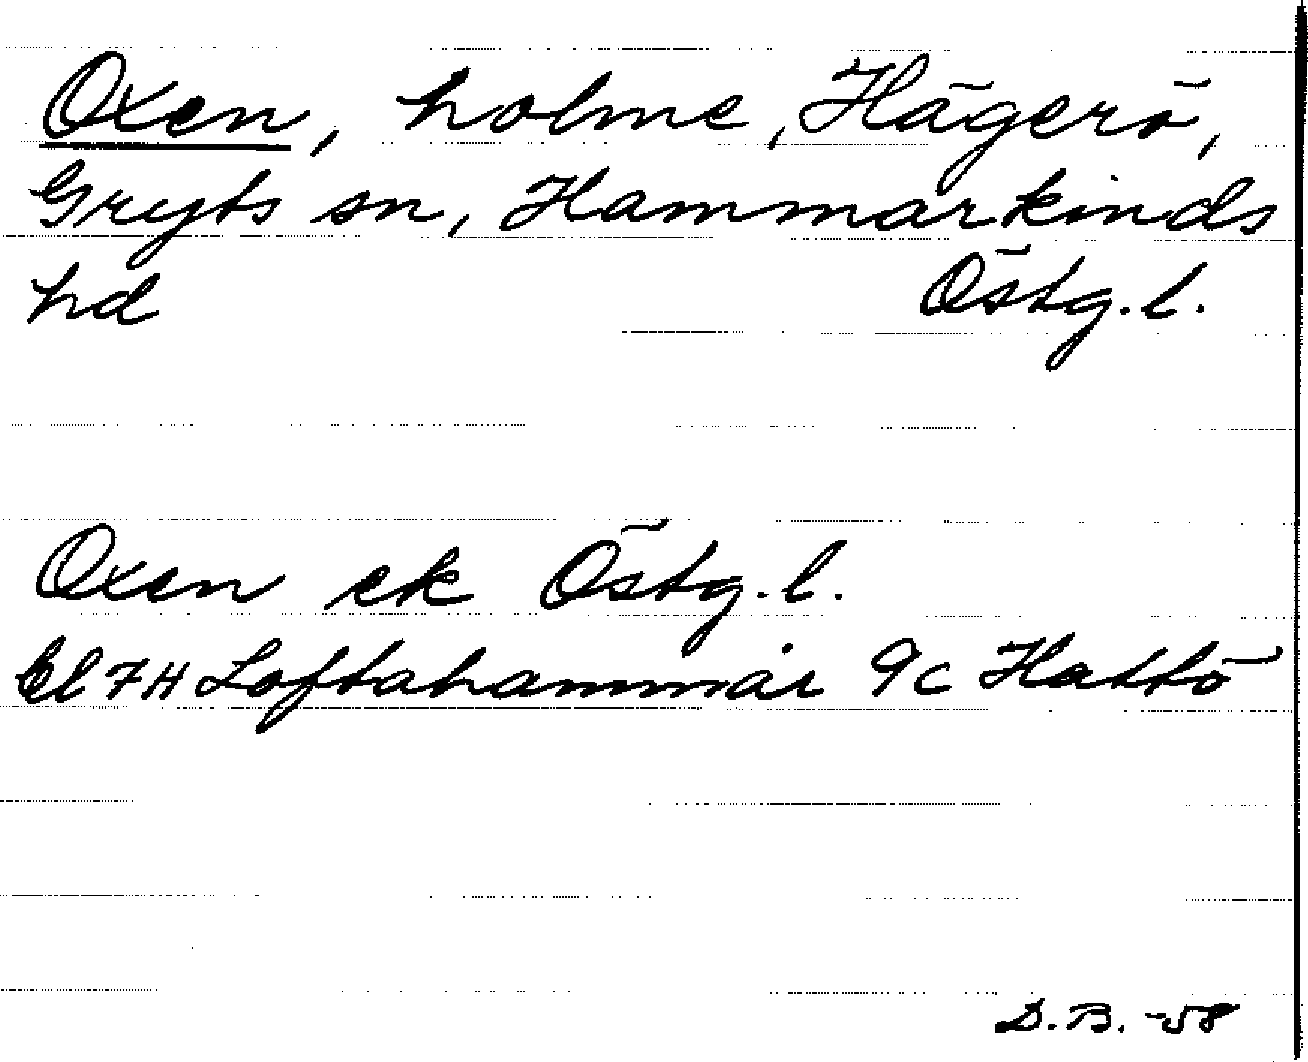 Oxen, holme, Hägerö,
Gryts sn, Hammarkinds
hd Östg. l.
Oxen ek Östg. l.
Bl 7H Loftahammar 9c Hattö
D.B. -58